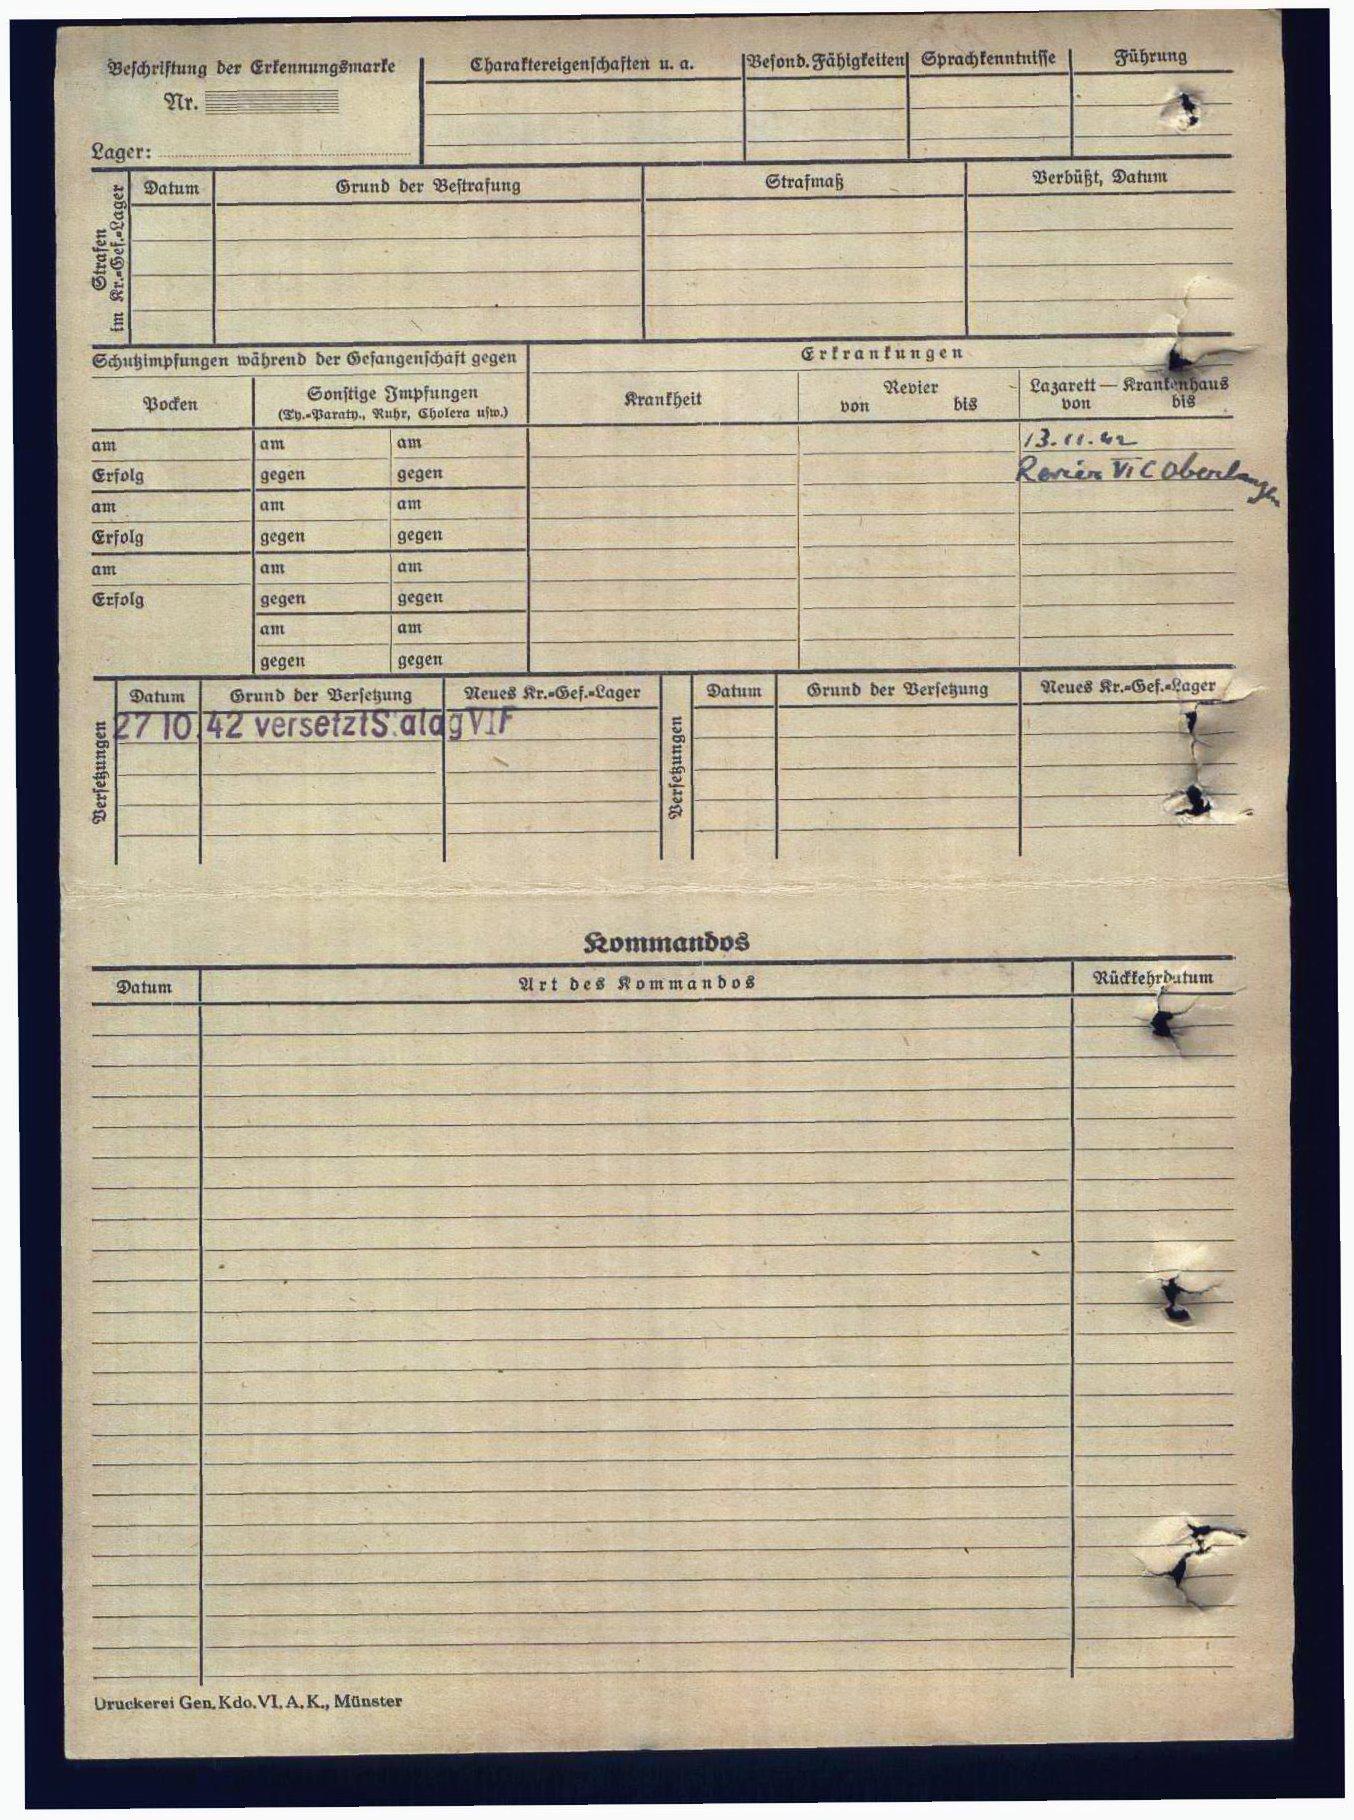 Beschriftung der Erkennungsmarke
Nr.
Lager:
Charaktereigenschaften u. a.
Besond. Fähigkeiten
Sprachkenntnisse
Führung
Strafen
im Kr.=Gef.=Lager
Datum
Grund der Bestrafung
Strafmaß
Verbüßt, Datum
Schutzimpfungen während der Gefangenschaft gegen
Erkrankungen
Pocken
Sonstige Impfungen
(Ty.=Paraty., Ruhr, Cholera usw.)
Krankheit
Revier
von bis
Lazarett — Krankenhaus
von bis
am am am
13.11.42
Erfolg gegen gegen
Revier VI C Oberlangen
am am am
Erfolg gegen gegen
am am am
Erfolg gegen gegen
am am
gegen gegen
Versetzungen
Datum Grund der Versetzung Neues Kr.=Gef.=Lager
27 10. 42 versetzt S.alag VI F
Versetzungen
Datum Grund der Versetzung Neues Kr.=Gef.=Lager
Kommandos
Datum Art des Kommandos Rückkehrdatum
Druckerei Gen. Kdo. VI. A. K., Münster